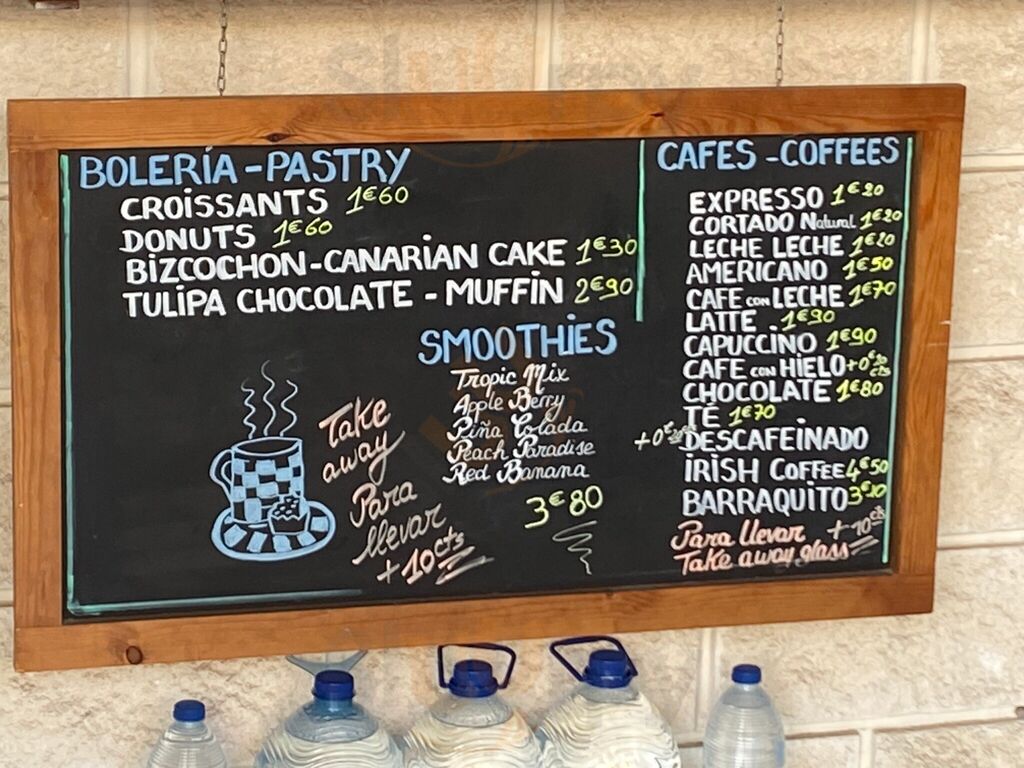 BOLERÍA - PASTRY
CROISSANTS 1€60
DONUTS 1€60
BIZCOCHON - CANARIAN CAKE 1€30
TULIPA CHOCOLATE - MUFFIN 2€90
SMOOTHIES
Tropic Mix
Apple Berry
Piña Colada
Peach Paradise
Red Banana
3€80
Take
away
Para
llevar
+ 10cts
CAFES - COFFEES
EXPRESSO 1€20
CORTADO Natural 1€20
LECHE LECHE 1€20
AMERICANO 1€50
CAFE CON LECHE 1€70
LATTE 1€90
CAPUCCINO 1€90
CAFE CON HIELO
CHOCOLATE 1€80
TÉ 1€70
DESCAFEINADO
IRISH COFFEE 4€50
BARRAQUITO
Para llevar + 10cts
Take away glass